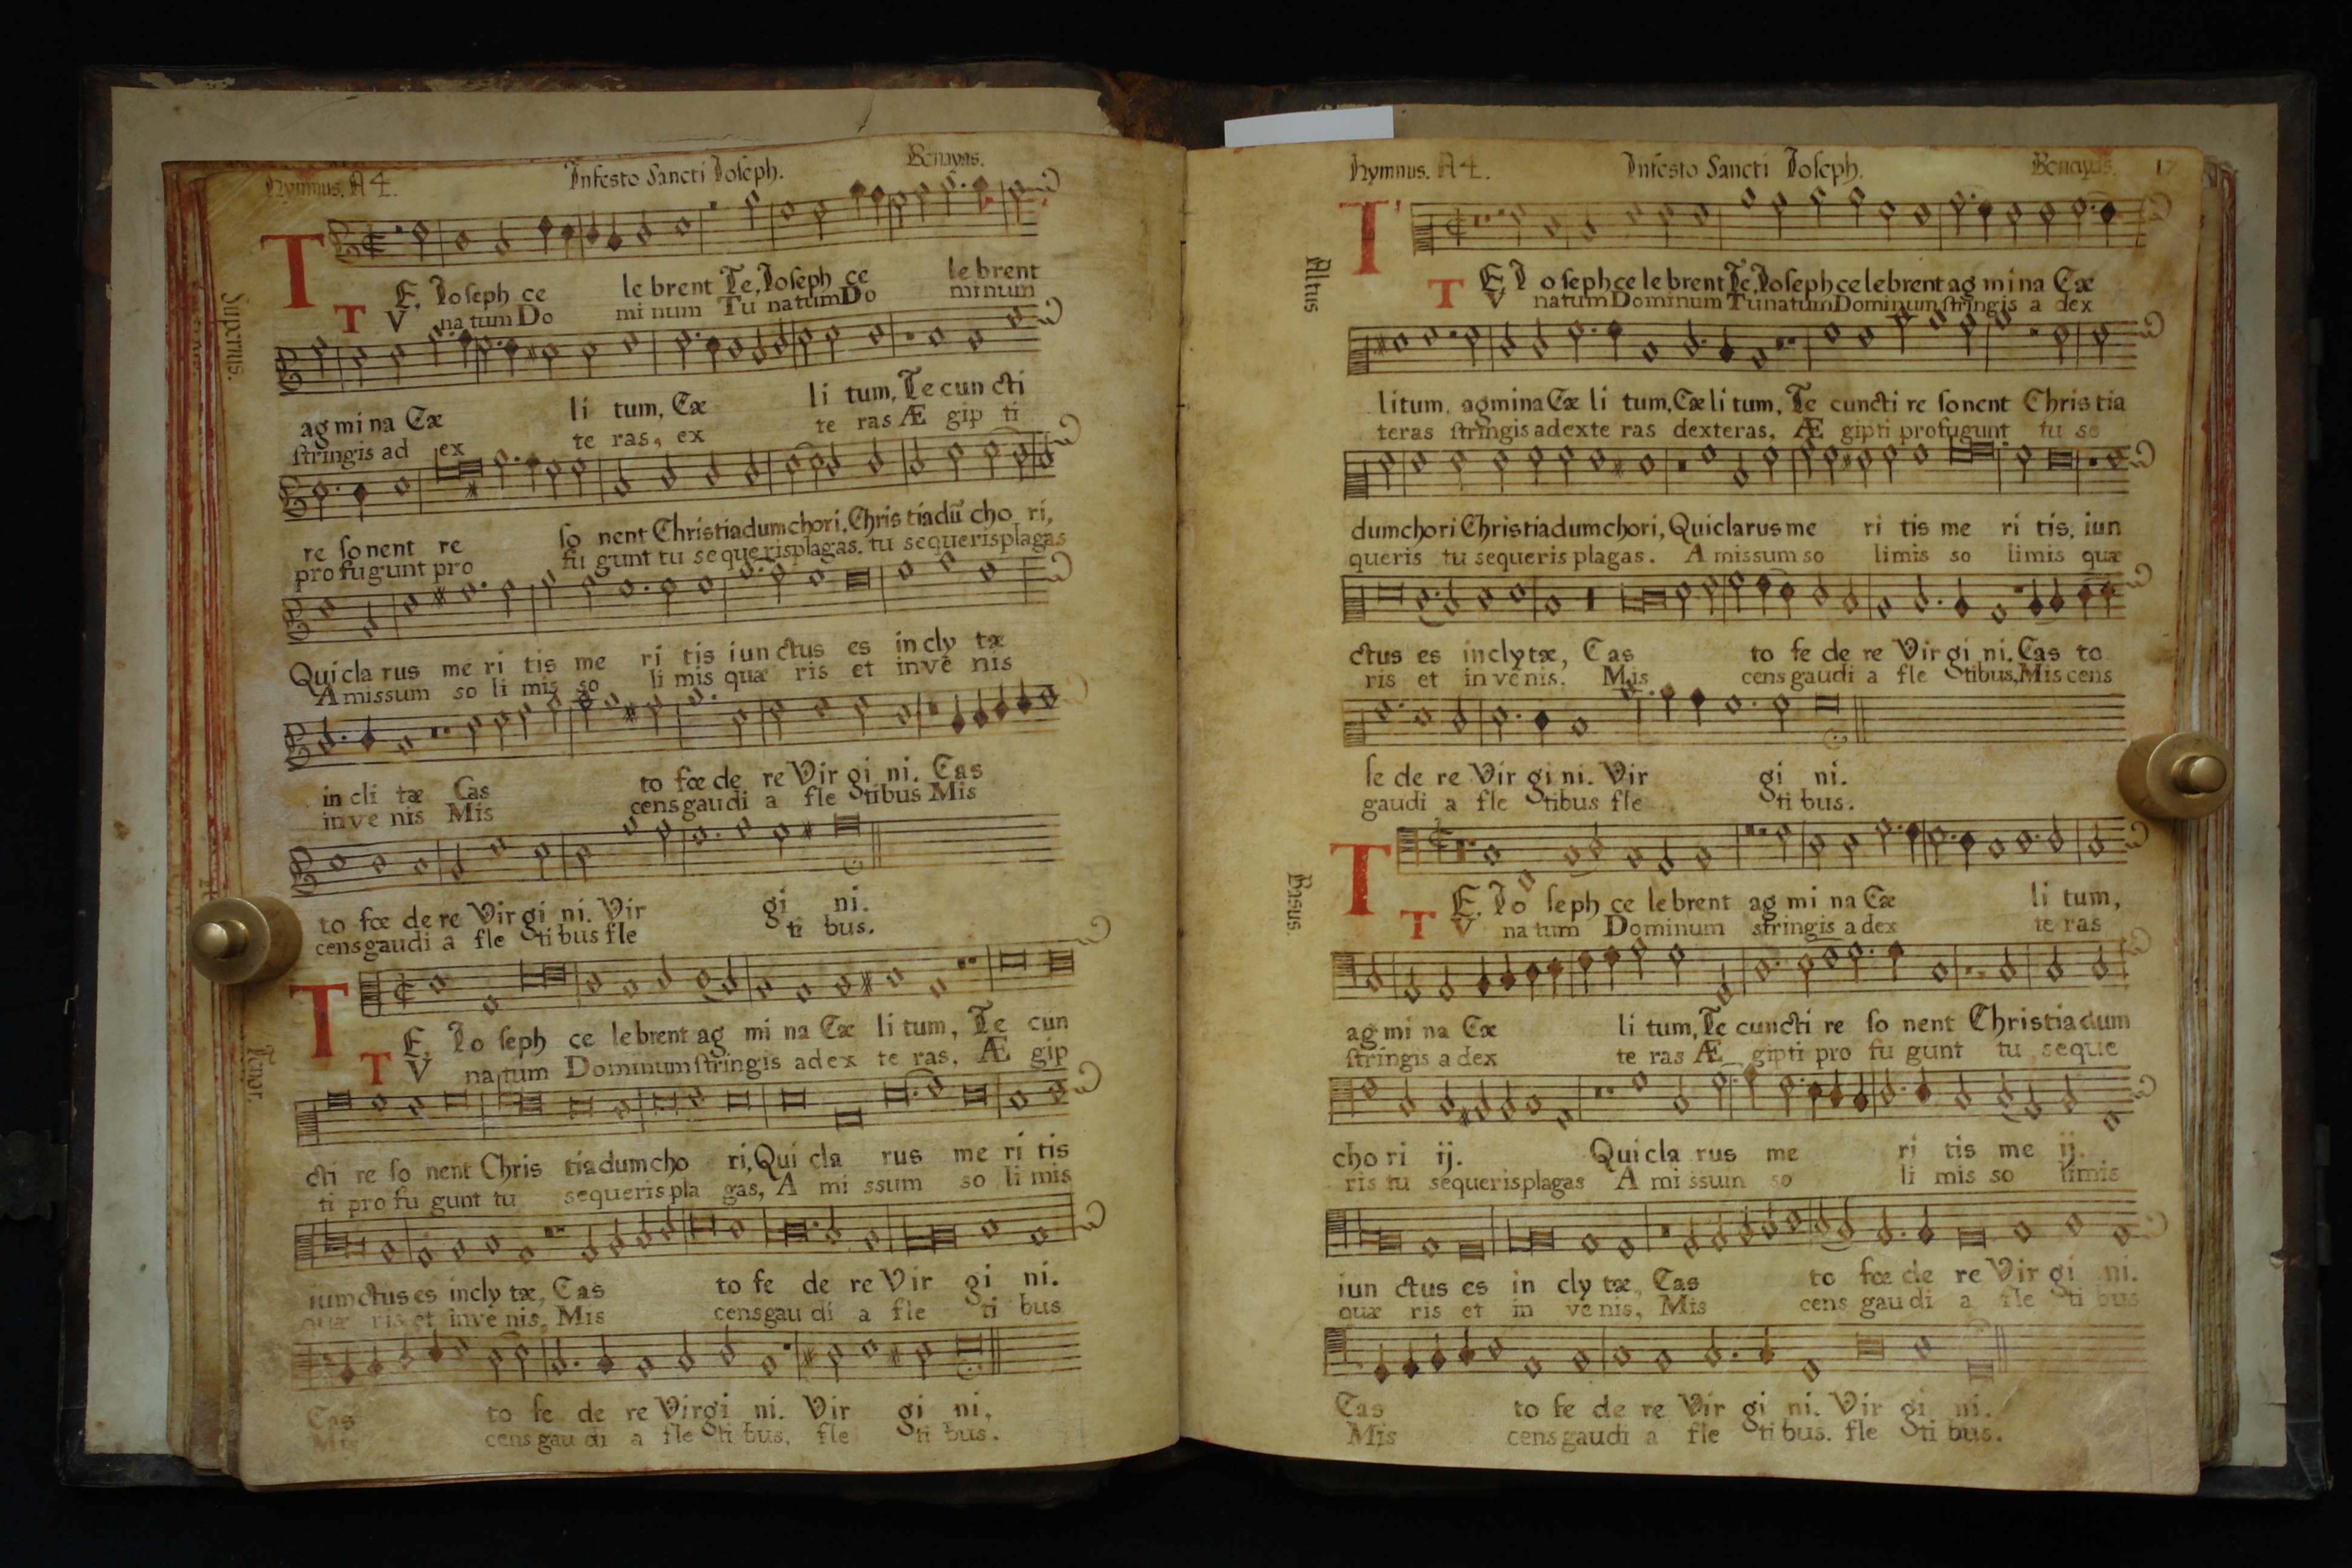 Hymnus. A 4. Infesto Sancti Ioseph. Benayas.
Supernus.
TE. Ioseph ce le brent Te, Ioseph ce le brent
TV na tum Do mi num Tu natum Do minum
ag mi na Cæ li tum, Cæ li tum, Te cun cti
stringis ad ex te ras, ex te ras Æ gip ti
re sonent re so nent Christiadum chori, Chris tiadū cho ri,
profugunt pro fu gunt tu sequerisplagas. tu sequerisplagas
Qui cla rus me ri tis me ri tis iun ctus es in cly tæ
A missum so li mis so li mis quæ ris et inve nis
in cli tæ Cas to fœ de re Vir gi ni. Cas
inve nis Mis cens gaudi a fle tibus Mis
to fœ de re Vir gi ni. Vir gi ni.
cens gaudi a fle ti bus fle ti bus.
Tenor.
TE. Io seph ce lebrent ag mi na Cæ li tum, Te cun
TV na tum Dominum stringis adex te ras, Æ gip
cti re so nent Chris tiadum cho ri, Qui cla rus me ri tis
ti pro fu gunt tu sequeris pla gas, A mi ssum so li mis
iunctus es incly tæ, Cas to fe de re Vir gi ni.
quæ ris et inve nis, Mis cens gau di a fle ti bus
Cas to fe de re Virgi ni. Vir gi ni.
Mis cens gau di a fle ti bus, fle ti bus.
Hymnus. A 4. Infesto Sancti Ioseph. Benayas. 17
Altus
TE Io seph ce le brent Te, Ioseph celebrent ag mi na Cæ
TV natum Dominum Tu natum Dominum stringis a dex
litum, agmina Cæ li tum, Cæ li tum, Te cuncti re sonent Chris tia
teras stringis adexte ras dexteras, Æ gipti profugunt tu se
dum chori Christiadum chori, Qui clarus me ri tis me ri tis, iun
queris tu sequeris plagas. A missum so limis so limis quæ
ctus es inclytæ, Cas to fe de re Vir gi ni. Cas to
ris et invenis. Mis cens gaudi a fle tibus, Mis cens
fe de re Vir gi ni. Vir gi ni.
gaudi a fle tibus fle ti bus.
Basus.
TE. Io seph ce lebrent ag mi na Cæ li tum,
TV na tum Dominum stringis a dex te ras
ag mi na Cæ li tum, Te cuncti re so nent Christiadum
stringis a dex te ras Æ gipti pro fu gunt tu seque
cho ri ij. Qui cla rus me ri tis me ij.
ris tu sequerisplagas A mi ssum so li mis so limis
iun ctus es in cly tæ, Cas to fœ de re Vir gi ni.
quæ ris et in ve nis, Mis cens gau di a fle ti bus
Cas to fe de re Vir gi ni. Vir gi ni.
Mis cens gaudi a fle ti bus. fle ti bus.